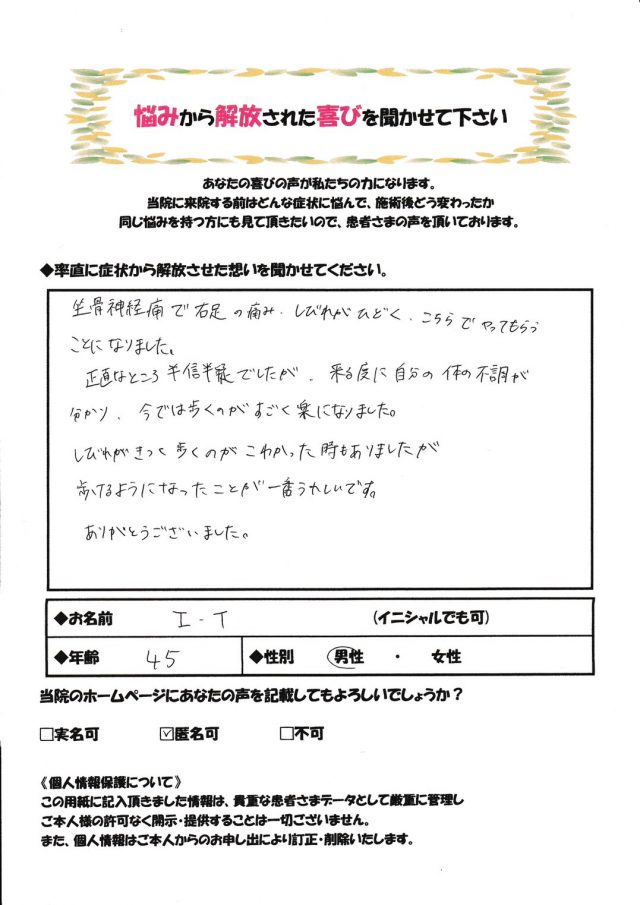 悩みから解放された喜びを聞かせて下さい
あなたの喜びの声が私たちの力になります。
当院に来院する前はどんな症状に悩んで、施術後どう変わったか
同じ悩みを持つ方にも見て頂きたいので、患者さまの声を頂いております。
◆率直に症状から解放させた想いを聞かせてください。
坐骨神経痛で右足の痛み、しびれがひどく、こちらでやってもらう
ことになりました。
正直なところ半信半疑でしたが、来る度に自分の体の不調が
分かり、今では歩くのがすごく楽になりました。
しびれがきつく歩くのがこわかった時もありましたが
歩けるようになったことが一番うれしいです。
ありがとうございました。
◆お名前 I - T (イニシャルでも可)
◆年齢 45 ◆性別 男性 ・ 女性
当院のホームページにあなたの声を記載してもよろしいでしょうか？
□実名可 ☑匿名可 □不可
《個人情報保護について》
この用紙に記入頂きました情報は、貴重な患者さまデータとして厳重に管理し
ご本人様の許可なく開示・提供することは一切ございません。
また、個人情報はご本人からのお申し出により訂正・削除いたします。